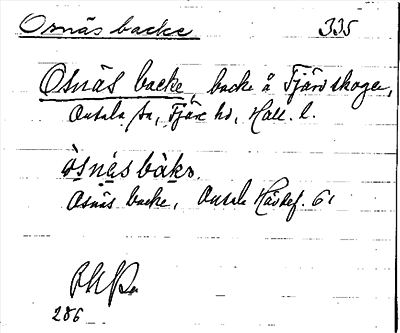 Osnäs backe 335
Osnäs backe, backe å Fjärdskogen,
Onsala sn, Fjäre hd, Hall. l.
òsnäsbàkə.
Osnäs backe, Onsala Häradsf. 61
286